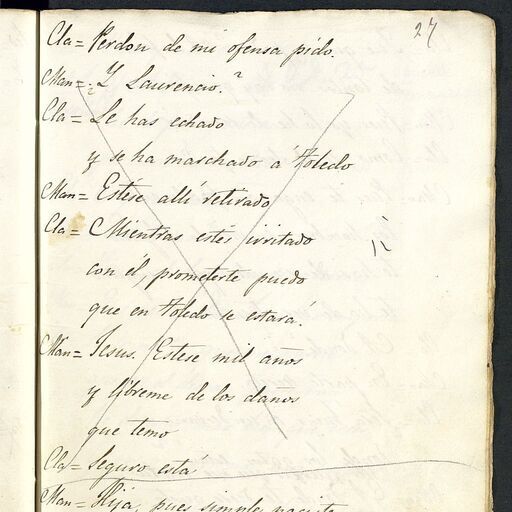 27
Cla = Perdon de mi ofensa pido.
Man = ¿Y Laurencio?
Cla = Le has echado
y se ha marchado á Toledo
Man = Estése allí retirado
Cla = Mientras estés irritado
con él, prometerte puedo
que en Toledo se estará.
Man = Jesus. Estese mil años
y líbreme de los daños
que temo
Cla = Seguro está
Man = Hija, pues simple naciste